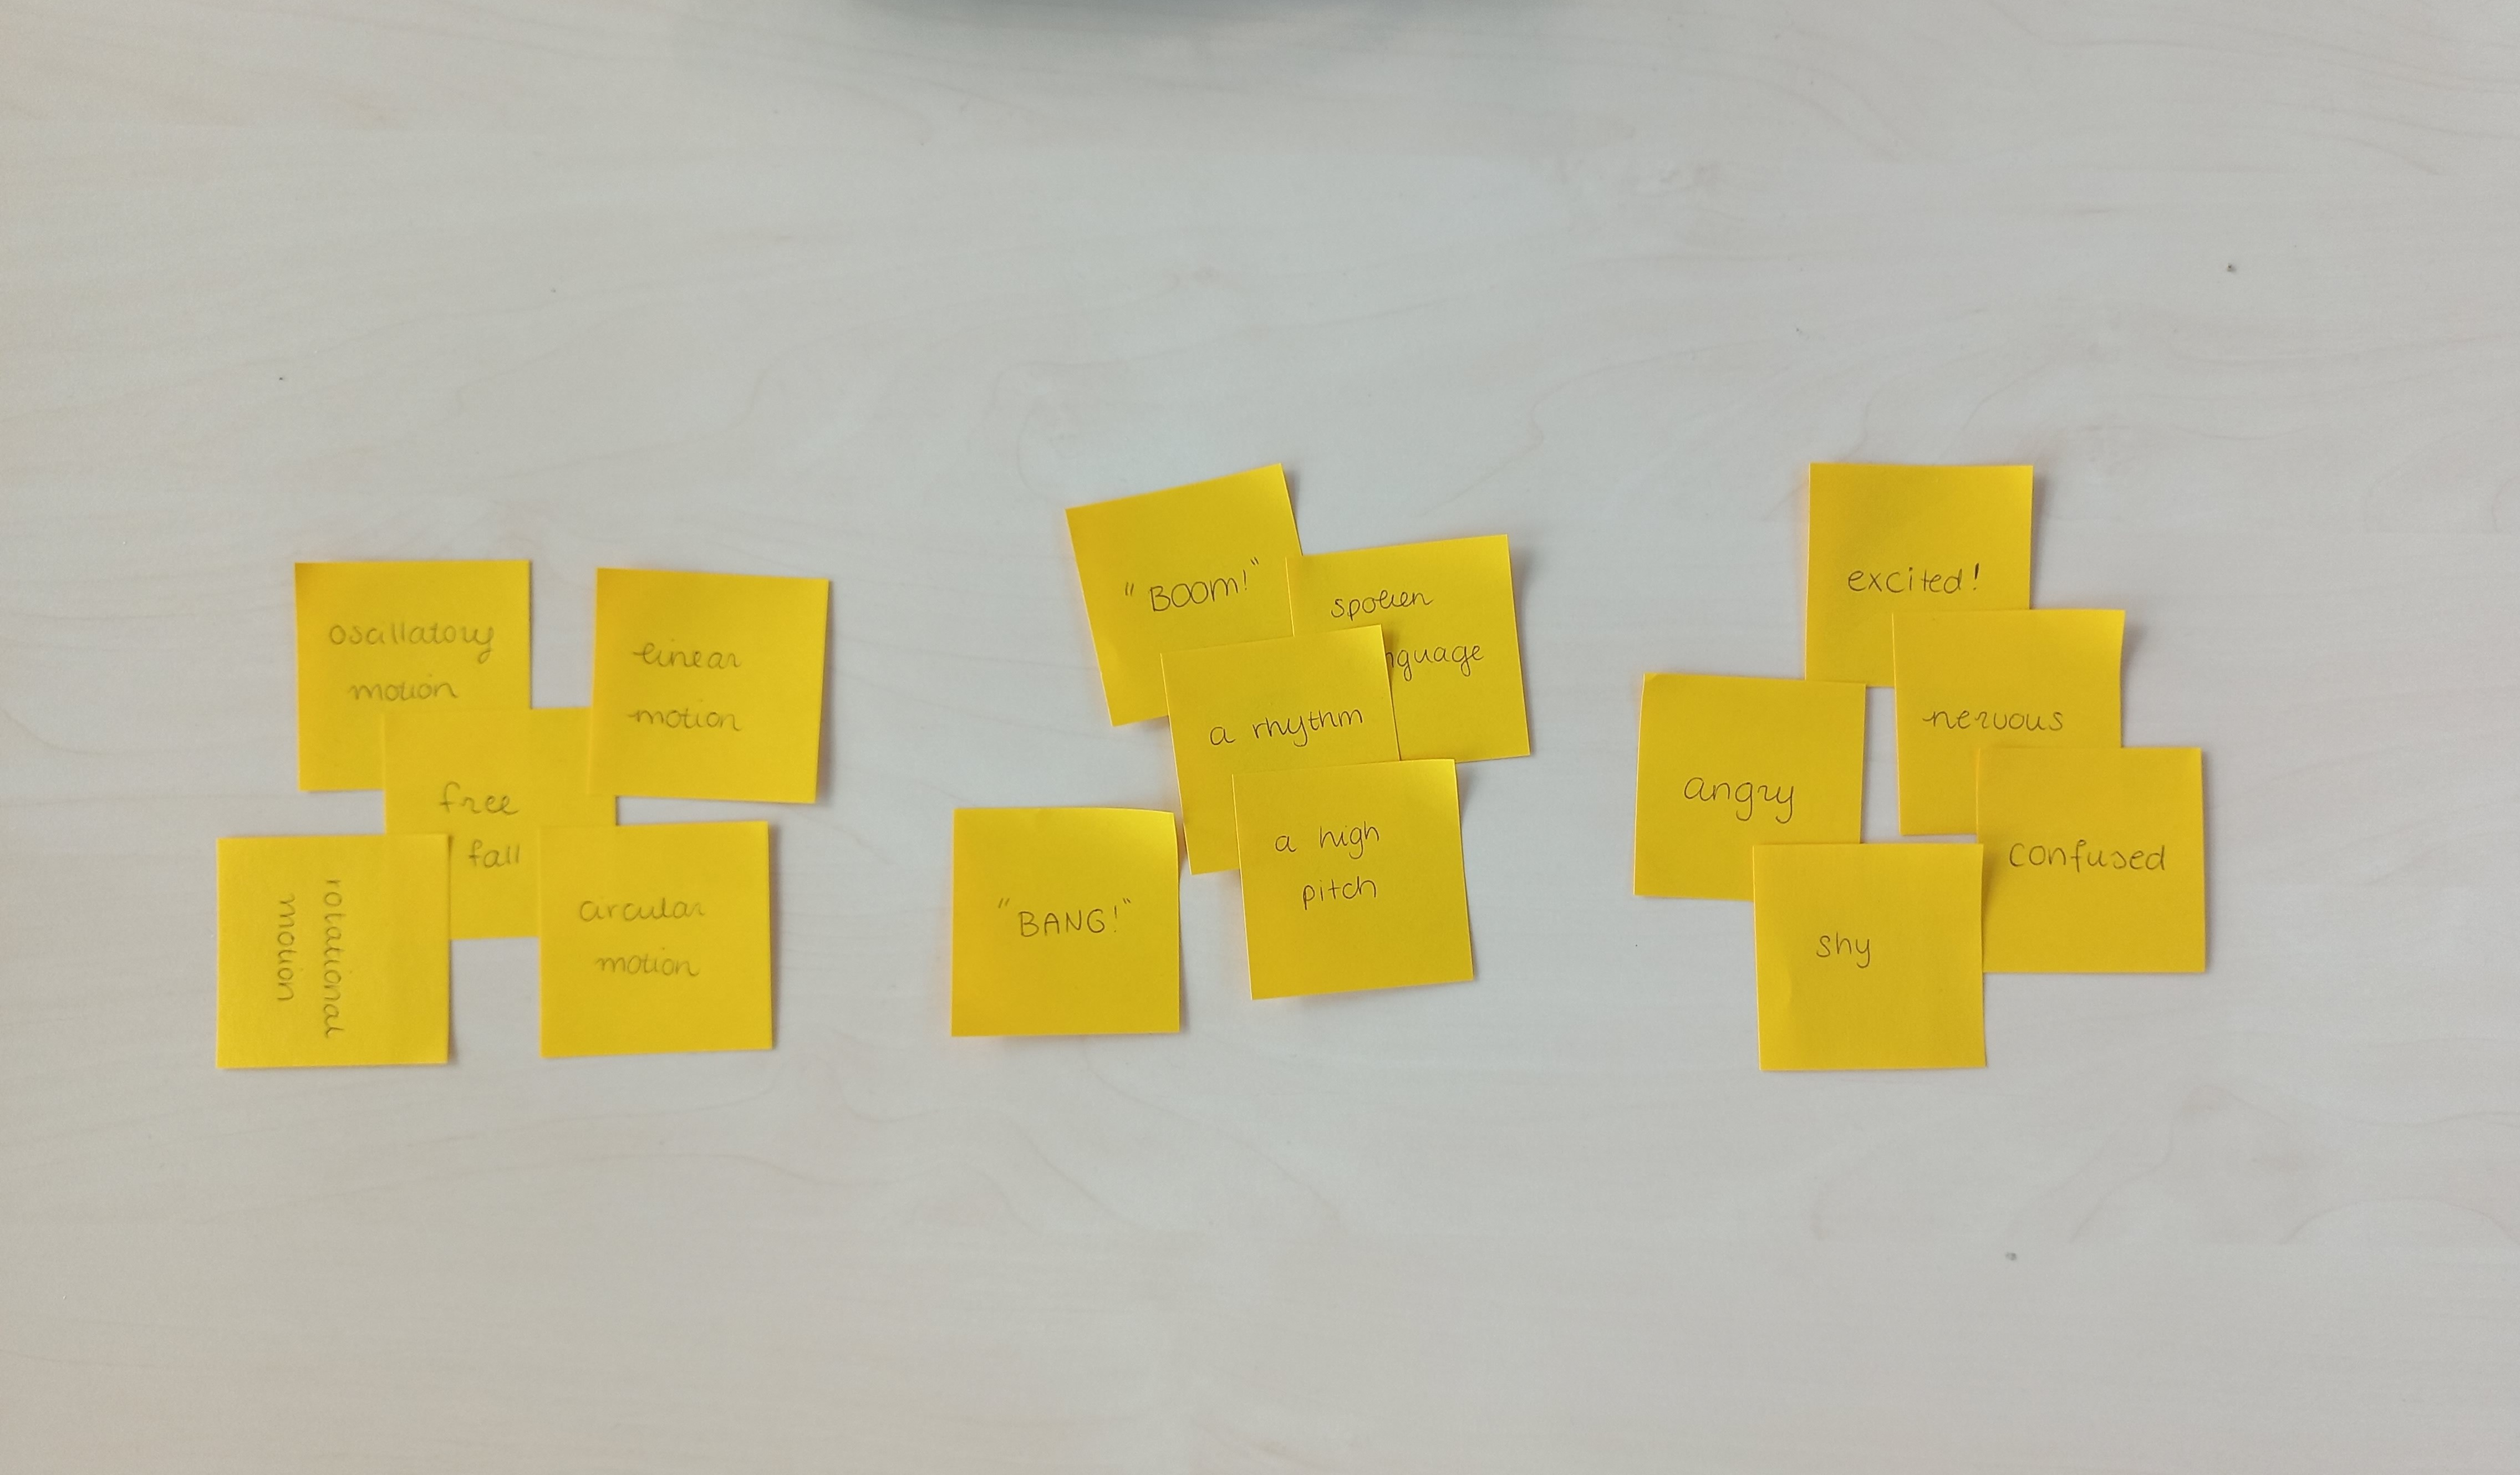 oscillatory
motion
linear
motion
free
fall
rotational
motion
circular
motion
"BOOM!"
spoken
nguage
a rhythm
a high
pitch
"BANG!"
excited!
nervous
angry
confused
shy